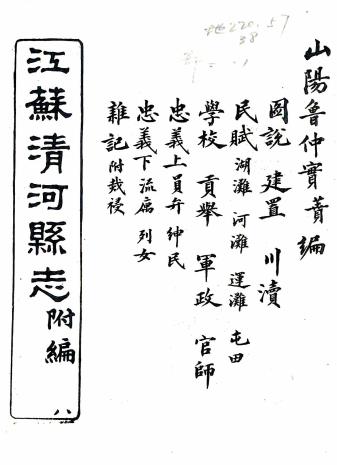 山陽魯仲實蕢編
圖說 建置 川瀆
民賦 湖灘 河灘 運灘 屯田
學校 貢舉 軍政 官師
忠義上 員弁 紳民
忠義下 流寓 列女
雜記 附裁祲
江蘇清河縣志 附編
八
地220.57
38